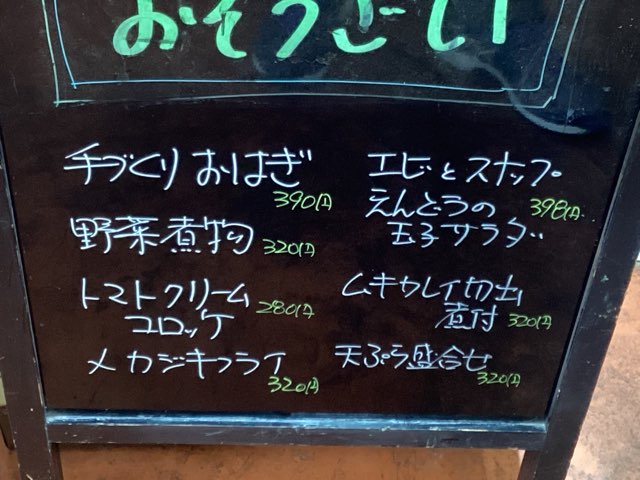 おそうざい
手づくりおはぎ
390円
野菜煮物 320円
トマトクリーム
コロッケ 280円
メカジキフライ
320円
エビとスナップ
えんどうの 398円
玉子サラダ
ムキカレイ切出
煮付 320円
天ぷら盛合せ
320円